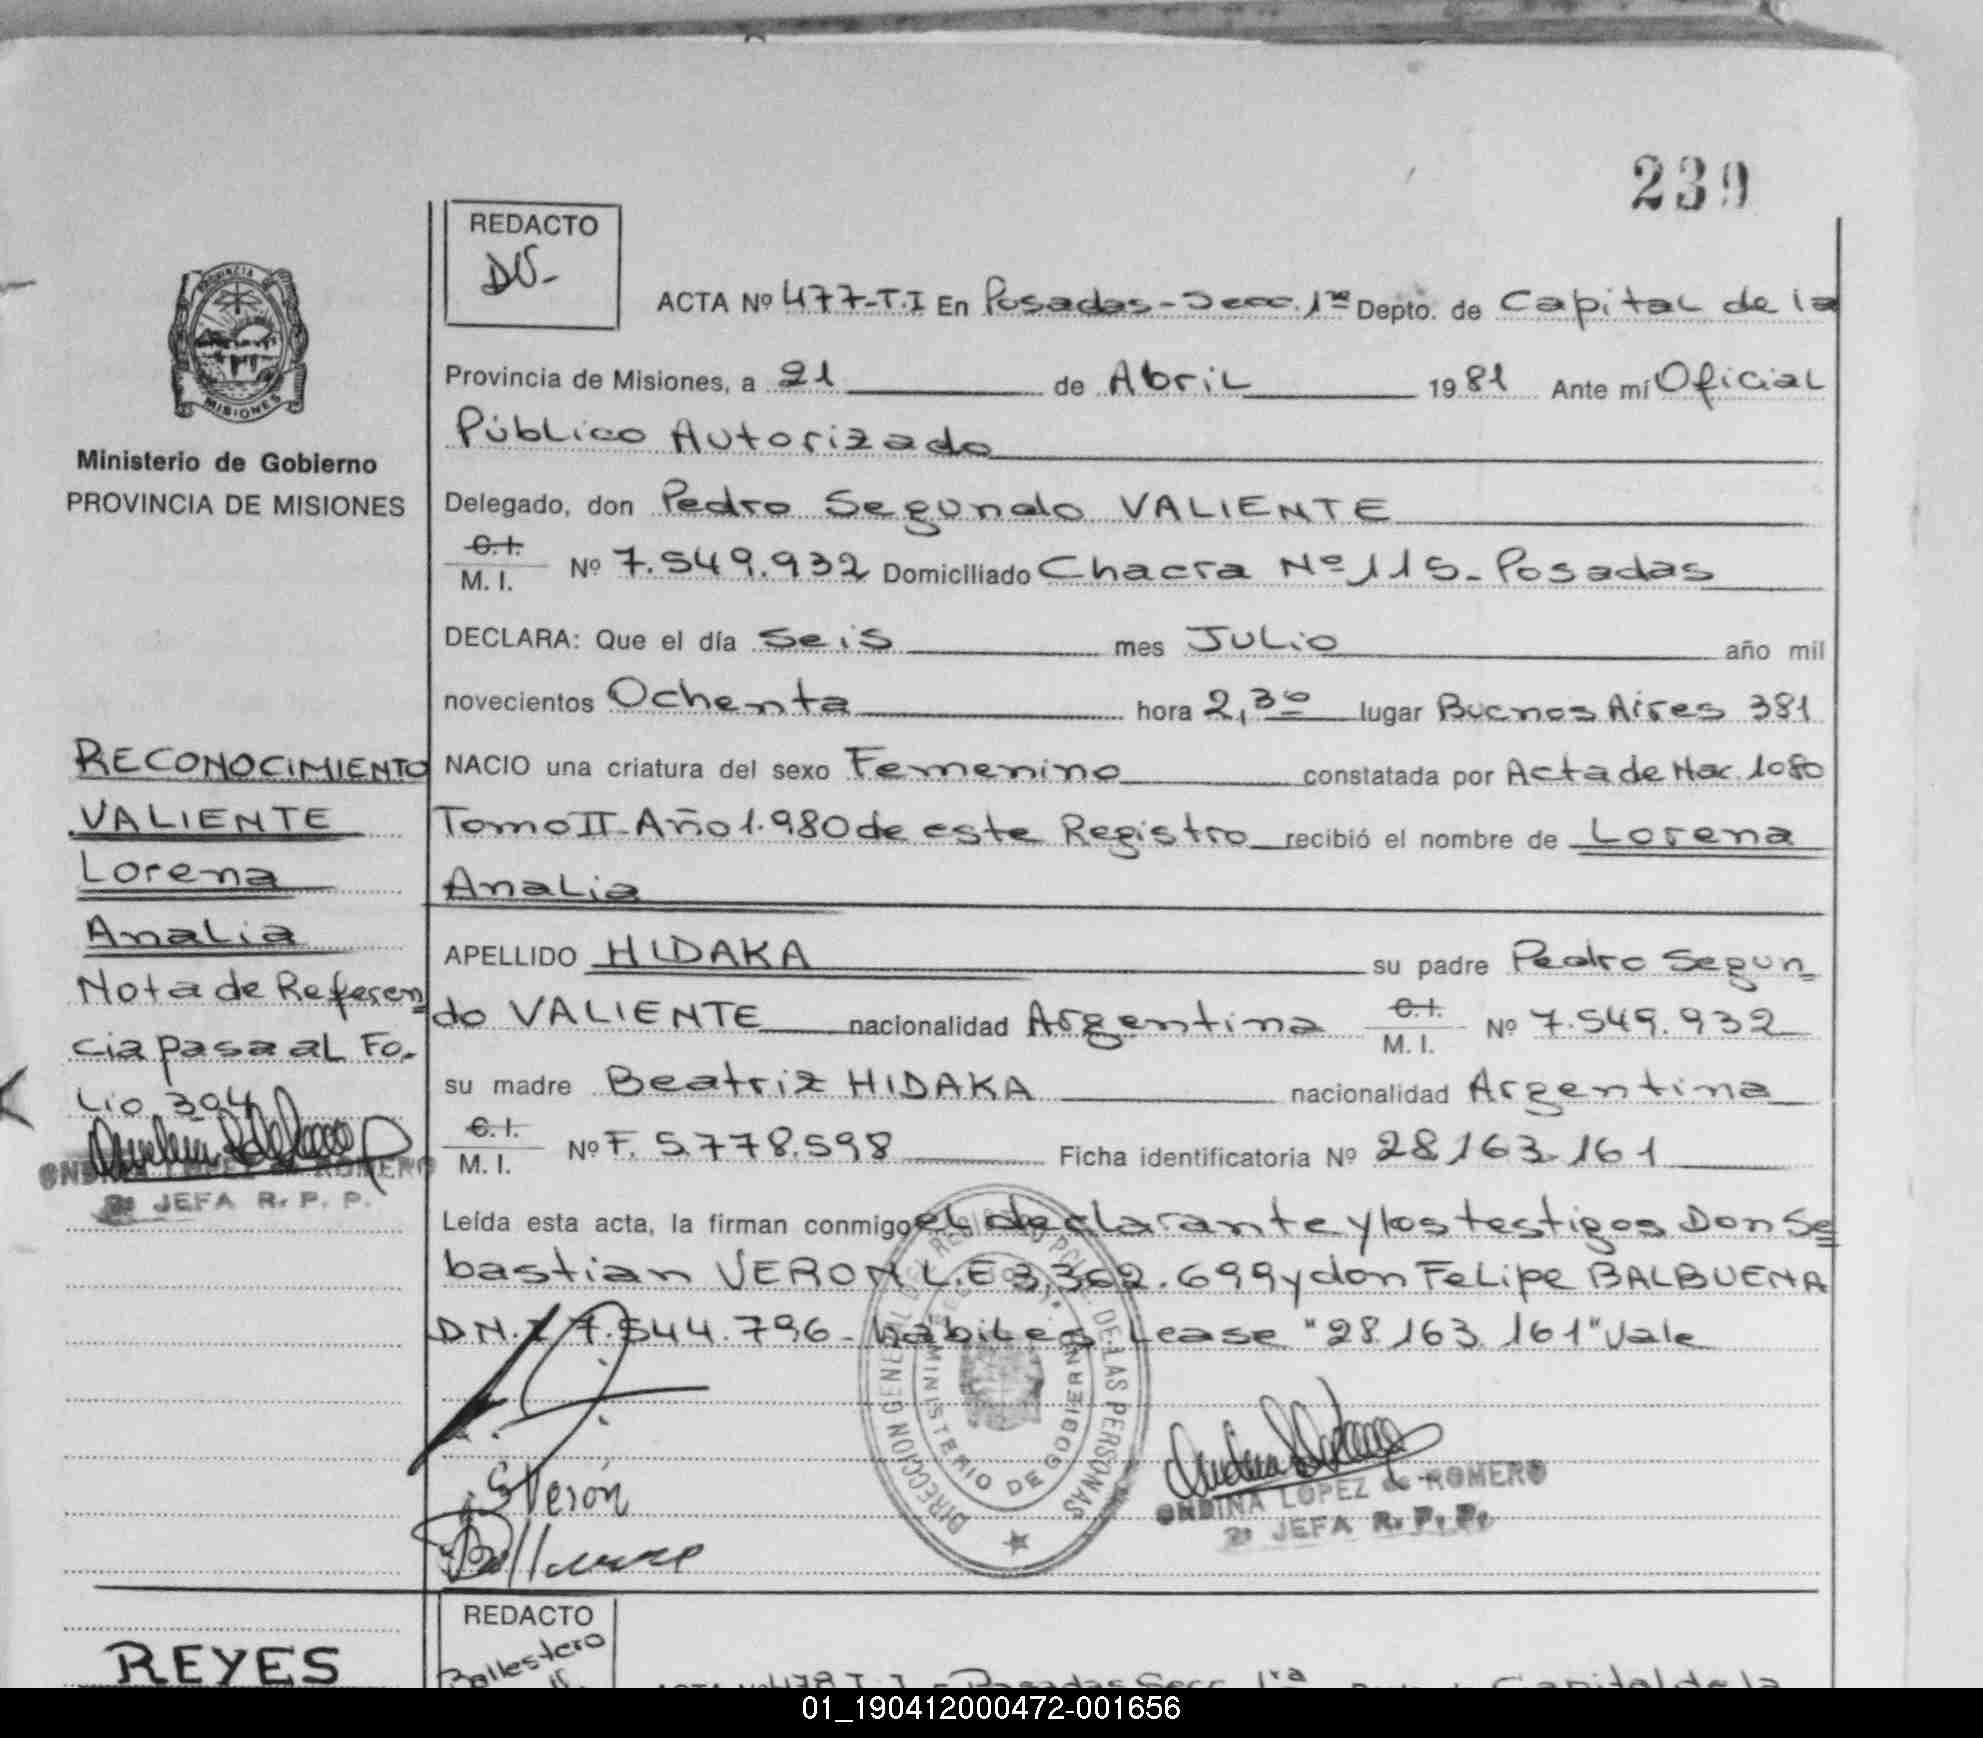 239
REDACTO
DV-
ACTA Nº 477-T.I En Posadas-Secc. 1ra Depto. de Capital de la
Provincia de Misiones, a 21 de Abril 1981 Ante mí Oficial
Público Autorizado
Ministerio de Gobierno
PROVINCIA DE MISIONES
Delegado, don Pedro Segundo VALIENTE
C.I.
M. I. Nº 7.549.932 Domiciliado Chacra Nº 115- Posadas
DECLARA: Que el día Seis mes Julio año mil
novecientos Ochenta hora 2,30 lugar Buenos Aires 381
NACIO una criatura del sexo Femenino constatada por Acta de Nac. 1080
Tomo II-Año 1.980 de este Registro recibió el nombre de Lorena
Analia
APELLIDO HIDAKA su padre Pedro Segun=
do VALIENTE nacionalidad Argentina C.I. M. I. Nº 7.549.932
su madre Beatriz HIDAKA nacionalidad Argentina
C.I.
M. I. Nº F. 5.778.598 Ficha identificatoria Nº 28.163.161
Leída esta acta, la firman conmigo el declarante y los testigos Don Se=
bastian VERON L.E 3.362.699 y don Felipe BALBUENA
D.N.I 7.544.796- habiles Lease "28.163.161" Vale
RECONOCIMIENTO
VALIENTE
Lorena
Analia
Nota de Referen=
cia pasa al Fo-
lio 394
ONDINA LOPEZ de ROMERO
JEFA R. P. P.
S Verón
DIRECCION GENERAL DEL REGISTRO PCIAL. DE LAS PERSONAS
MINISTERIO DE GOBIERNO
ONDINA LOPEZ de ROMERO
JEFA R. P. P.
REDACTO
Ballestero
REYES
ACTA Nº 478 T. I Posadas Secc. 1ra Capital de la
01_190412000472-001656